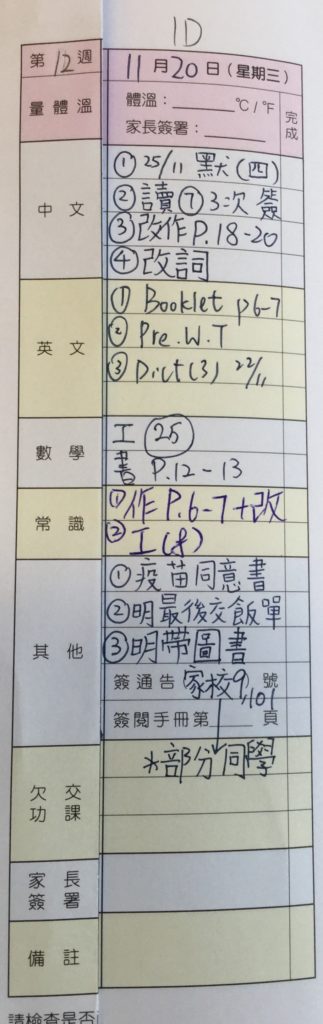 1D
第12週 11月20日(星期三)
量體溫 體溫：______ ℃/℉ 完成
家長簽署：______
中文
① 25/11 默(四)
② 讀⑦ 3次 簽
③ 改作 P.18-20
④ 改詞
英文
① Booklet p6-7
② Pre.W.T
③ Dict(3) 22/11
數學
工 25
書 P.12-13
常識
① 作 P.6-7+改
② 工(8)
其他
① 疫苗同意書
② 明最後交飯單
③ 明帶圖書
簽通告 家校9/101 號
簽閱手冊第______頁
欠交功課
*部分同學
家長簽署
備註
請檢查是否